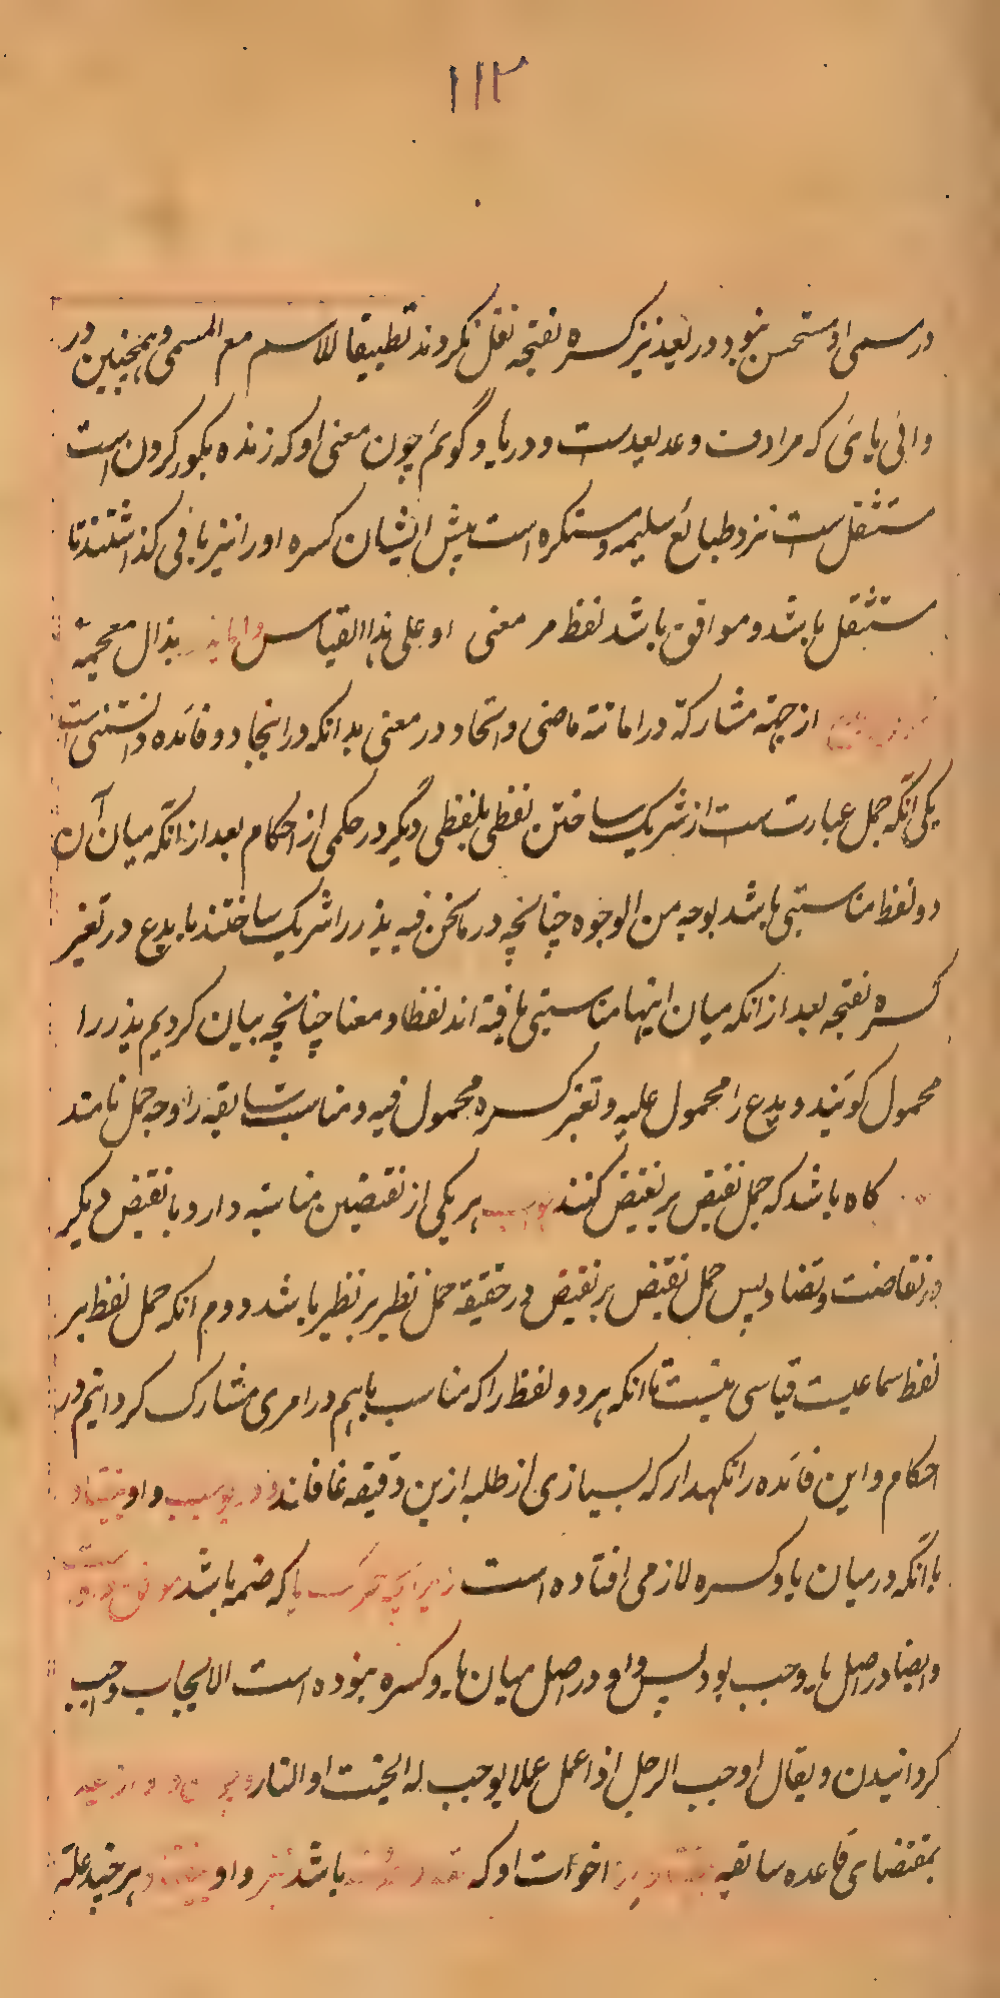 ۱۱۲
در سمی او مستحسن نبود و در یعد نیز کسره بفتحه نقل نکردند تطبیقا للاسم مع المسمی و همچنین در
وائی یایٔ که مرادف وعد یعدست و در یا و گویٔم چون معنی او که زنده بگور کردن است
مستثقل ست نزد طبائع سلیمه و مستکره است پیش ایشان کسره او را نیز باقی گذاشتند تا
مستثقل باشد و موافق باشد لفظ مر معنی او علی هذا القیاس واما یذر بذال معجمة
از جهة مشارکة در اماتة ماضی و اتحاد در معنی بدانکه در اینجا دو فائده دانستنی است
یکی آنکه حمل عبارت ست از شریک ساختن لفظی بلفظی دیگر در حکمی از احکام بعد از آنکه میان آن
دو لفظ مناسبتی باشد بوجه من الوجوه چنانچه در ما نحن فیه یذر را شریک ساختند با یدع در تغیر
کسره بفتحه بعد از آنکه میان اینها مناسبتی یافته اند لفظا و معنا چنانچه بیان کردیم یذر را
محمول گویند و یدع را محمول علیه و تغیر کسره محمول فیه و مناسبت سابقه را وجه حمل نامند
گاه باشد که حمل نقیض بر نقیض کنند هر یکی از نقیضین مناسبة دارد با نقیض دیگر
در تقاضت و تضاد پس حمل نقیض بر نقیض در حقیقة حمل نظیر بر نظیر باشد دوم انکه حمل لفظ بر
لفظ سماعیت قیاسی نیست تا انکه هر دو لفظ را که مناسب باهم در امری مشارک گردانیم در
احکام و این فائده را نگهدار که بسیازی از طلبه ازین دقیقه غافلند و در یوجب واو نیفتاد
با آنکه در میان یا و کسره لازمی افتاده است زیراچه حرکت یا که ضمه باشد موافق واوست
و ایضا در اصل یاوجب بود پس واو در اصل میان یا و کسره نبوده است الایجاب واجب
گردانیدن و یقال اوجب الرجل اذا عمل عملا یوجب له الجنت او النار
بمقتضای قاعده سابقه اخوات او که باشد نیز واو نیفتد هر چند علة